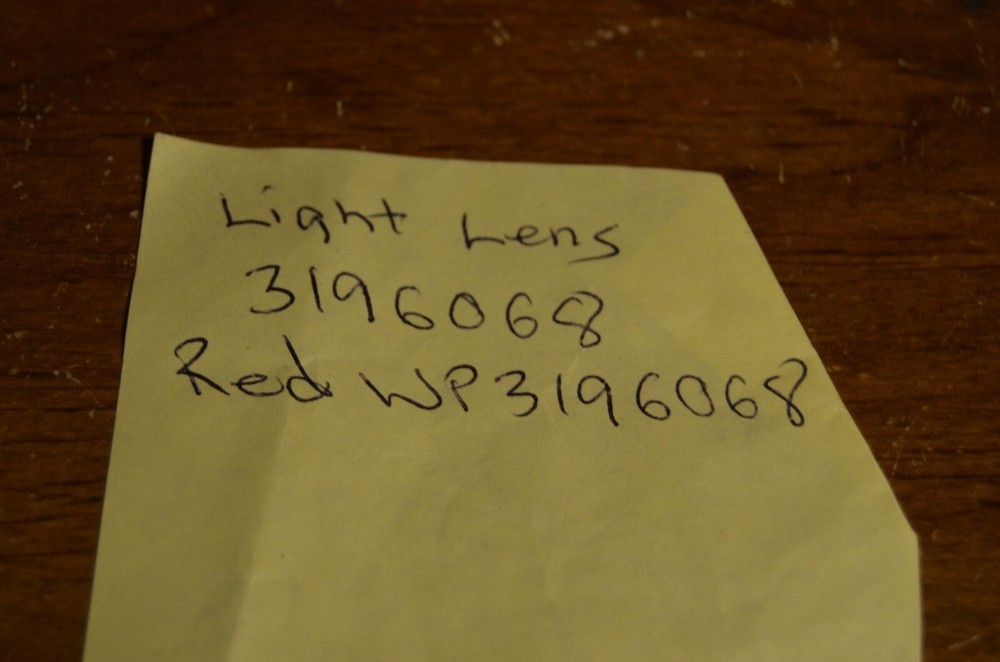 Light Lens
3196068
Red WP3196068